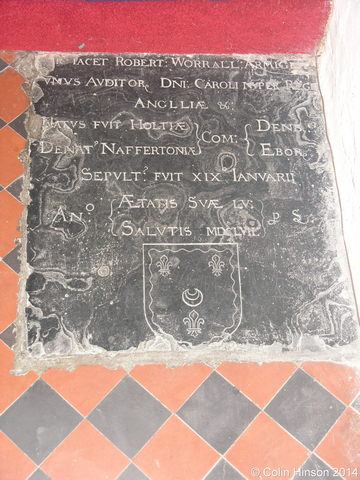 IACET ROBERT: WORRALL: ARMIGE
VNVS AVDITOR: DÑI: CAROLI NVPER REG
ANGLIÆ &:
NATVS FVIT HOLTIÆ } COM: { DENB
DENAT: NAFFERTONIÆ } COM: { EBOR
SEPVLT: FVIT XIX IANVARII
AN:o { ÆTATIS SVÆ LV:
SALVTIS MDCLVII
© Colin Hinson 2014